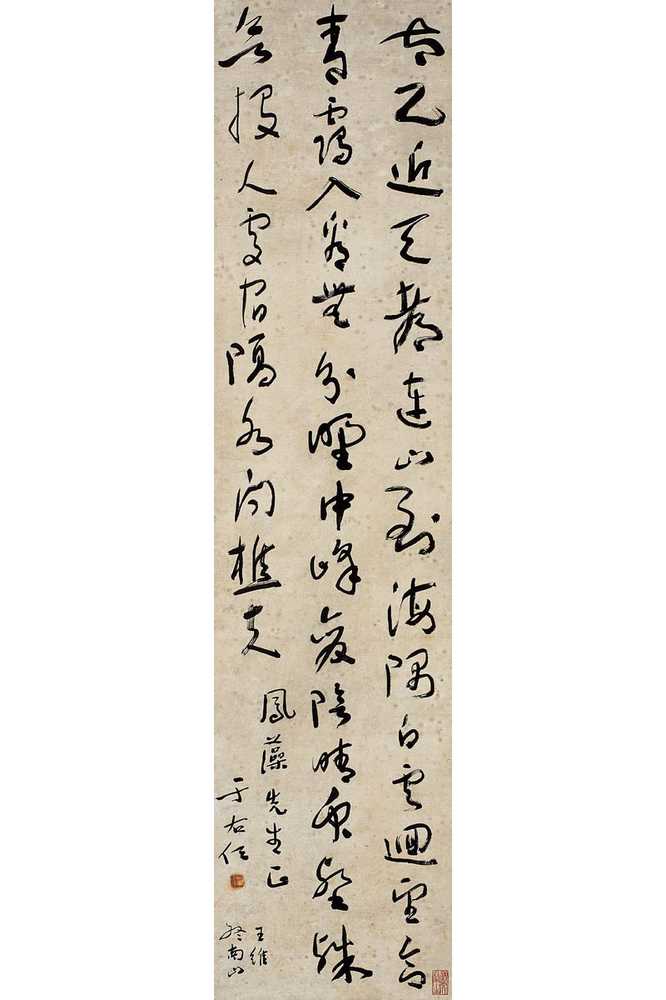 太乙近天都連山到海隅白雲迴望合
青靄入看無分野中峰變陰晴眾壑殊
欲投人處宿隔水問樵夫
鳳藻先生正
于右任
王維
終南山